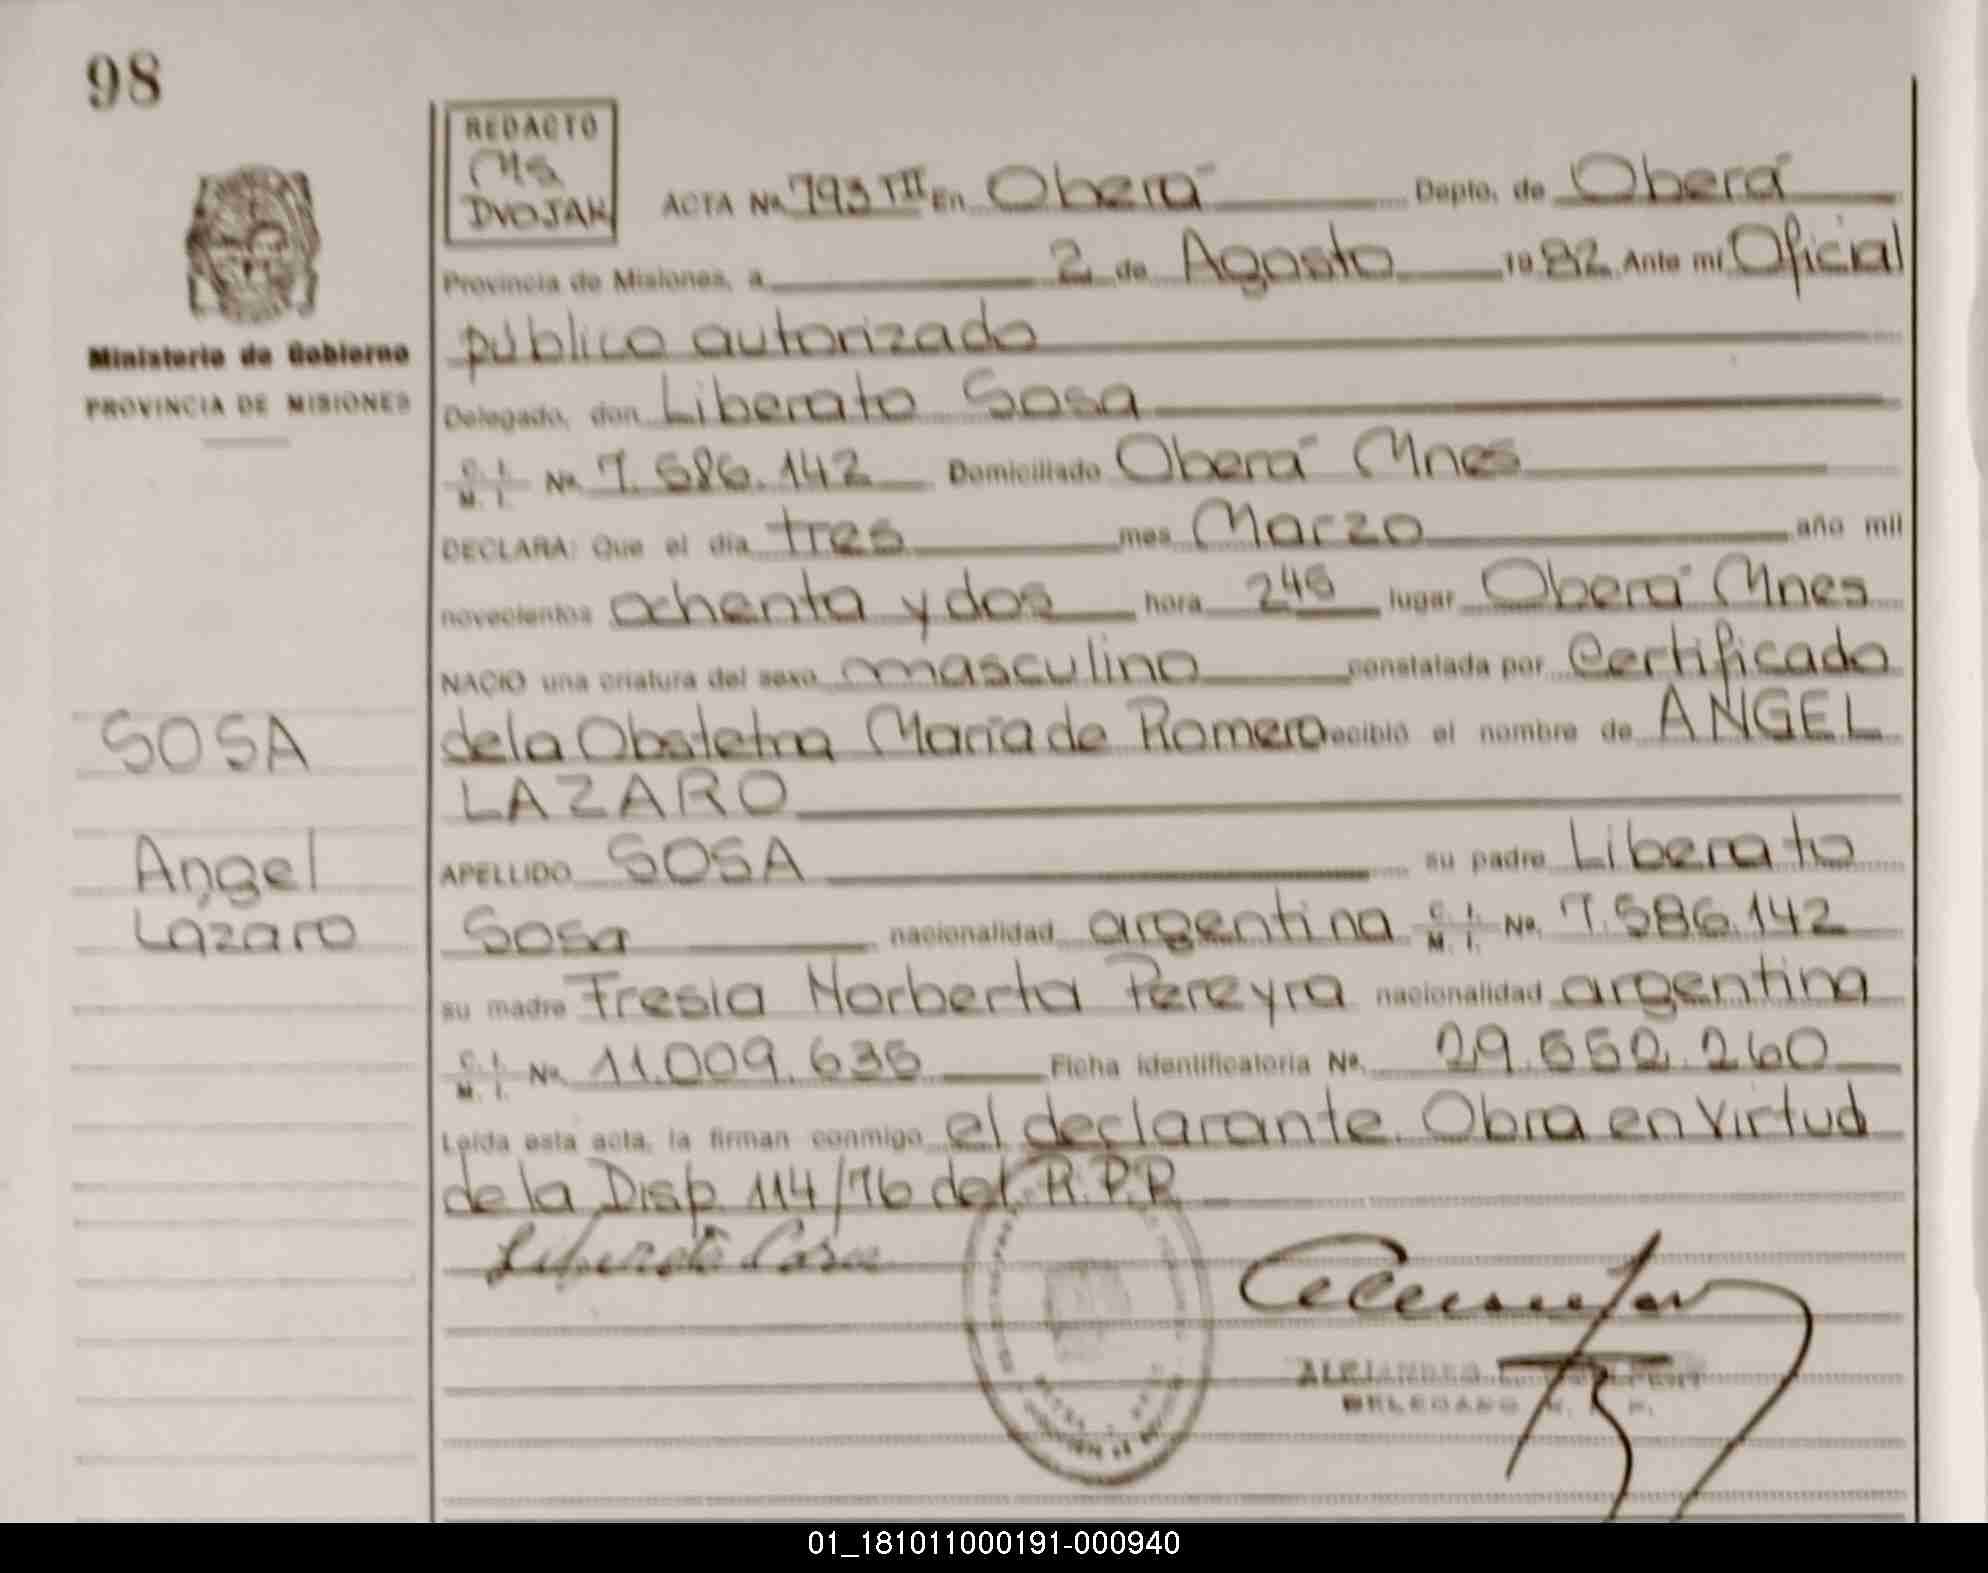 98
REDACTO
Ms
DVOJAK
ACTA No. 793 TII En Oberá Depto. de Oberá
Provincia de Misiones, a 2 de Agosto 1982 Ante mí Oficial
público autorizado
Ministerio de Gobierno
PROVINCIA DE MISIONES
Delegado, don Liberato Sosa
C. I. M. I. No. 7.586.142 Domiciliado Oberá Mnes
DECLARA: Que el día tres mes Marzo año mil
novecientos ochenta y dos hora 245 lugar Oberá Mnes
NACIO una criatura del sexo masculino constatada por Certificado
de la Obstetra María de Romero recibió el nombre de ANGEL
LAZARO
SOSA
Angel
Lázaro
APELLIDO SOSA su padre Liberato
Sosa nacionalidad argentina C. I. M. I. No. 7.586.142
su madre Fresia Norberta Pereyra nacionalidad argentina
C. I. M. I. No. 11.009.635 Ficha identificatoria No. 29.552.260
Leída esta acta, la firman conmigo el declarante. Obra en virtud
de la Disp. 114/76 del R.P.P.
Liberato Sosa
ALEJANDRO
DELEGADO
01_181011000191-000940